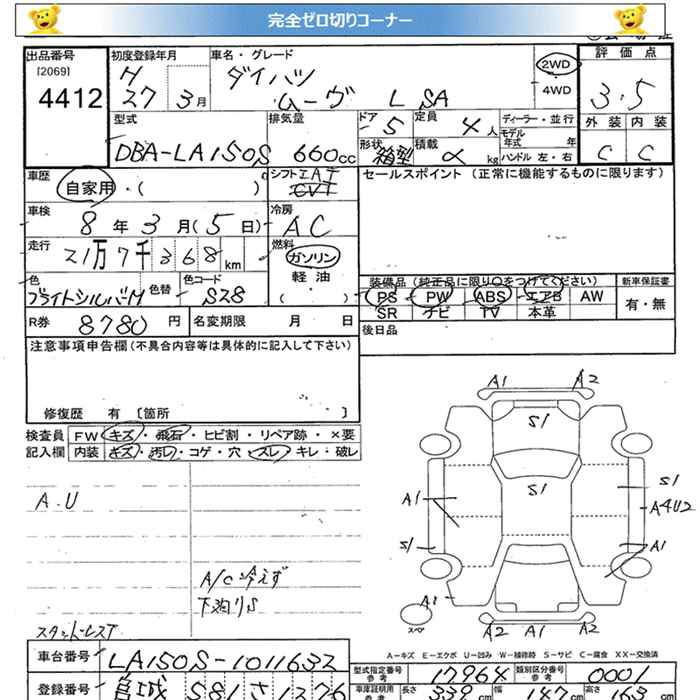 完全ゼロ切りコーナー
出品番号 [2069] 4412
初度登録年月 H27 3月
車名・グレード ダイハツ ムーヴ L SA
2WD
4WD
評価点 3.5
外装 内装
C C
型式 DBA-LA150S
排気量 660cc
ドア 5
定員 4人
形状 箱型
積載 α kg
ディーラー・並行
モデル年式 年
ハンドル 左・右
車歴 自家用・( )
シフト IAT
CVT
セールスポイント(正常に機能するものに限ります)
車検 8年3月(5日)
冷房 AC
走行 21万7千368km
燃料 ガソリン
軽油
( )
色 ブライトシルバーM
色替
色コード S28
装備品(純正品に限り○をつけてください)
PS PW ABS エアB AW
SR ナビ TV 本革
新車保証書
有・無
R券 8780円
名変期限 月 日
後日品
注意事項申告欄(不具合内容等は具体的に記入して下さい)
修復歴 有 [箇所 ]
検査員記入欄
FW キズ・飛石・ヒビ割・リペア跡・×要
内装 キズ・汚レ・コゲ・穴・スレ・キレ・破レ
A.U
A/C冷えず
下廻りS
A1 A2
S1
S1
S1
A1
A4U2
S1
A1
A1
スペア
A2 A1 A2
A-キズ E-エクボ U-凹み W-補修跡 S-サビ C-腐食 XX-交換済
車台番号 LA150S-1011632
型式指定番号 参考 17964
類別区分番号 参考 0001
登録番号
車庫証明用 参考 長さ 339cm 幅 147cm 高さ 163cm